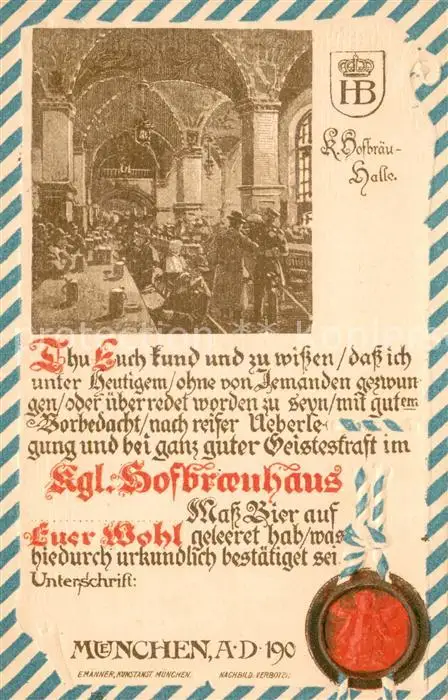 HB
K. Hofbräu-
Halle.
Thu Euch kund und zu wißen/daß ich
unter Heutigem/ohne von Jemanden gezwun
gen/oder überredet worden zu seyn/mit gutem
Vorbedacht/nach reifer Ueberle-
gung und bei ganz guter Geisteskraft im
Kgl. Hofbræuhaus
Maß Bier auf
Euer Wohl geleeret hab/was
hiedurch urkundlich bestätiget sei
Unterschrift:
MUENCHEN, A·D·190
E.MANNER, KUNSTANST. MÜNCHEN. NACHBILD. VERBOTEN